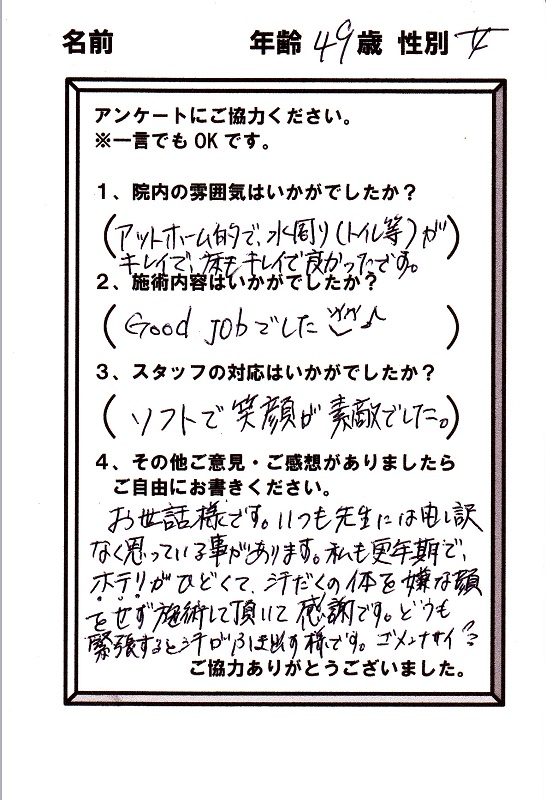 名前 年齢 49 歳 性別 女
アンケートにご協力ください。
※一言でも OK です。
1、院内の雰囲気はいかがでしたか？
(アットホーム的で、水周り(トイレ等)が
キレイで、床もキレイで良かったです。)
2、施術内容はいかがでしたか？
(Good Jobでした♪)
3、スタッフの対応はいかがでしたか？
(ソフトで笑顔が素敵でした。)
4、その他ご意見・ご感想がありましたら
ご自由にお書きください。
お世話様です。いつも先生には申し訳
なく思っている事があります。私も更年期で、
ホテリがひどくて、汗だくの体を嫌な顔
をせず施術して頂いて感謝です。どうも
緊張すると汗がふき出す様です。ゴメンナサイ
ご協力ありがとうございました。